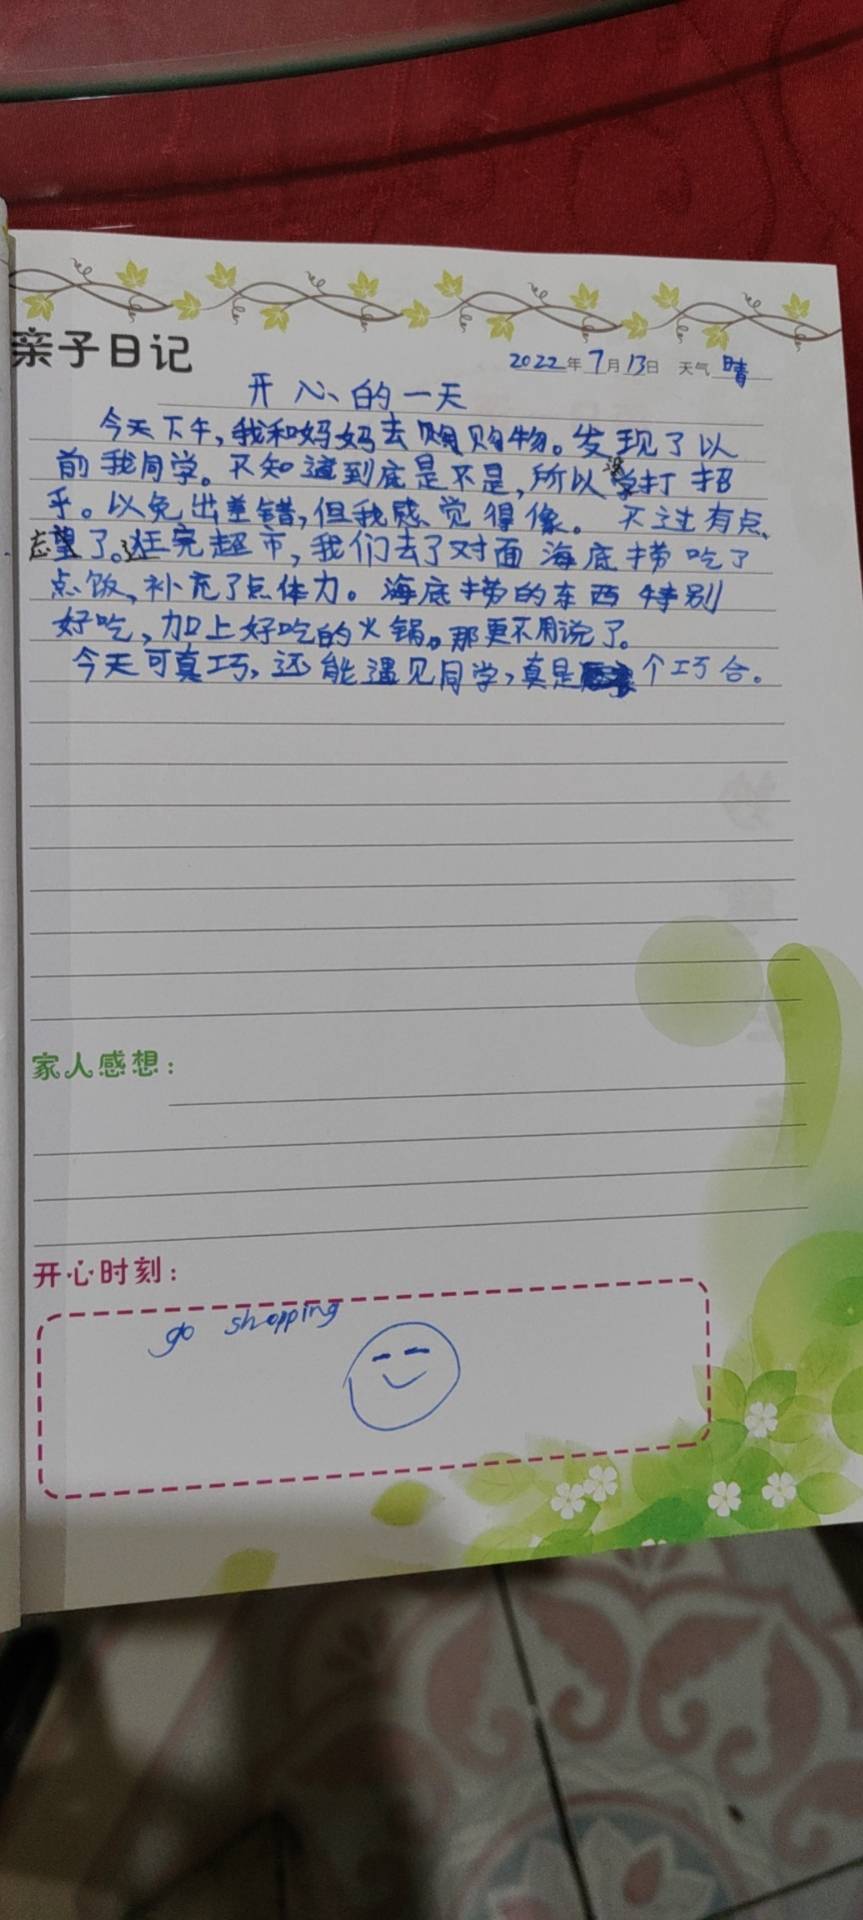 亲子日记
2022年7月13日 天气 晴
开心的一天
今天下午,我和妈妈去购物。发现了以
前我同学。不知道到底是不是,所以没打招
乎。以免出差错,但我感觉得像。不过有点
忘望了。逛完超市,我们去了对面海底捞吃了
点饭,补充了点体力。海底捞的东西特别
好吃,加上好吃的火锅。那更不用说了。
今天可真巧,还能遇见同学,真是个巧合。
家人感想:
开心时刻:
go shopping